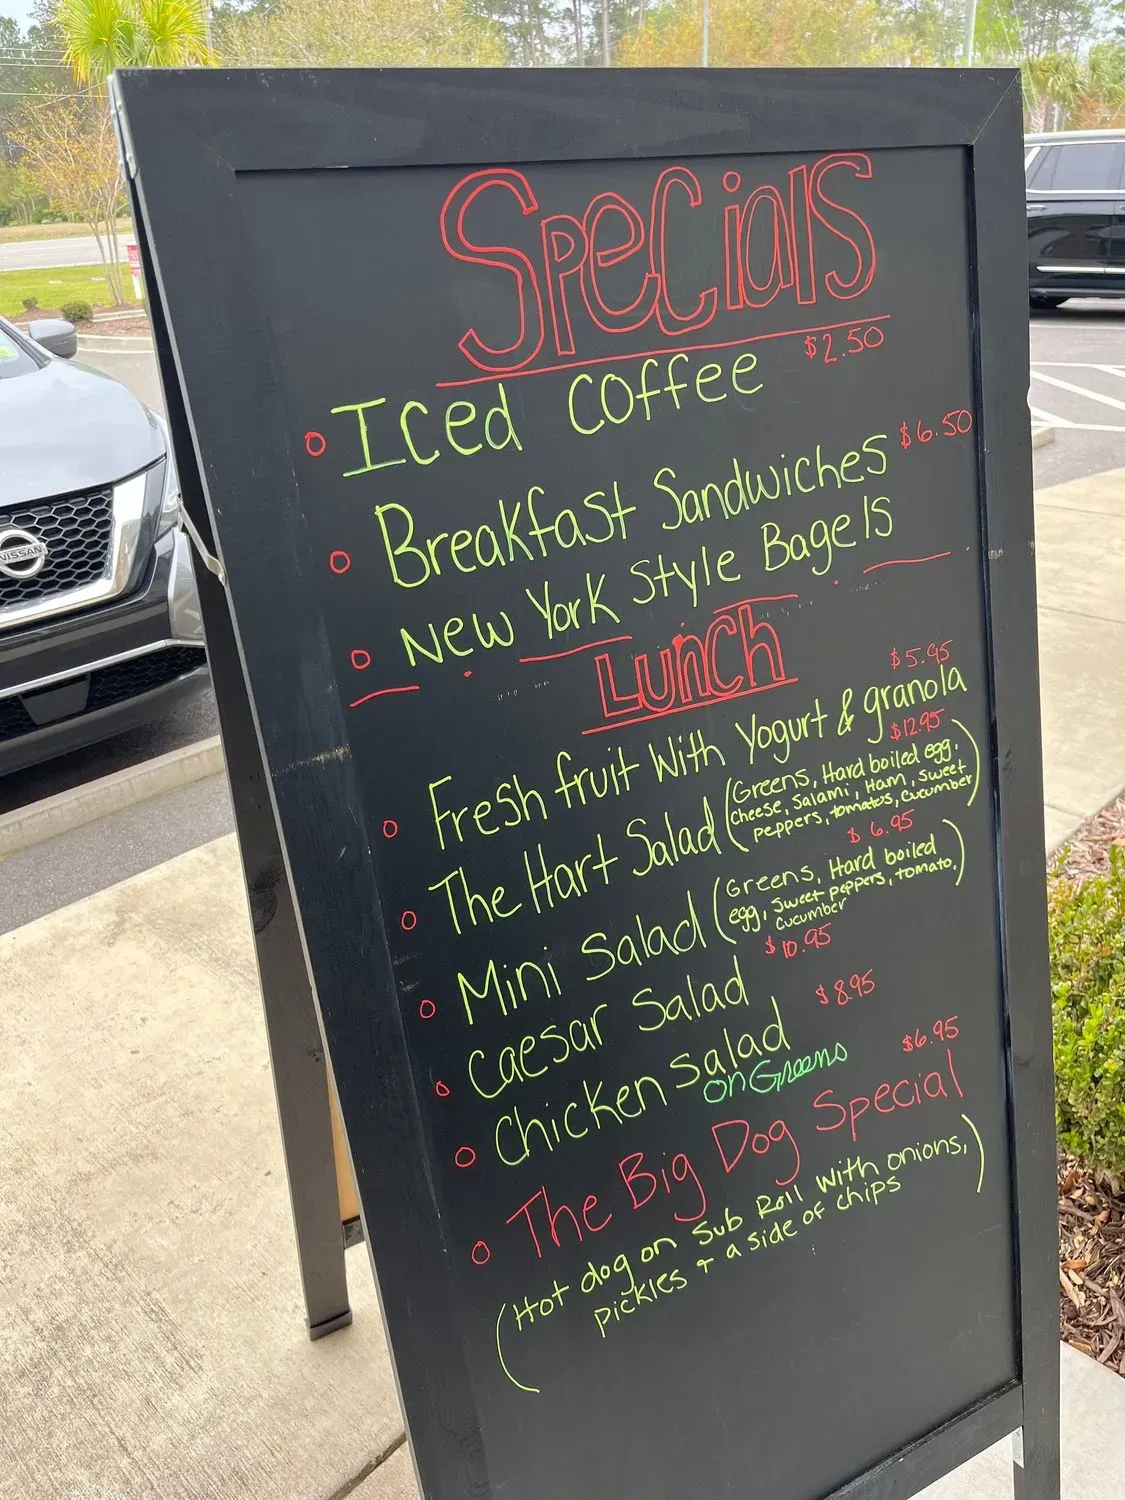 Specials
Iced Coffee $2.50
Breakfast Sandwiches $6.50
New York Style Bagels
Lunch
$5.95
Fresh fruit With Yogurt & granola
$12.95
The Hart Salad (Greens, Hard boiled egg.
cheese, Salami, Ham, Sweet
peppers, tomatos, cucumber)
$6.95
Mini Salad (Greens, Hard boiled
egg, Sweet peppers, tomato,
cucumber)
$10.95
Caesar Salad
$8.95
Chicken Salad
on Greens
$6.95
The Big Dog Special
(Hot dog on Sub Roll With onions,
pickles + a side of chips)
NISSAN